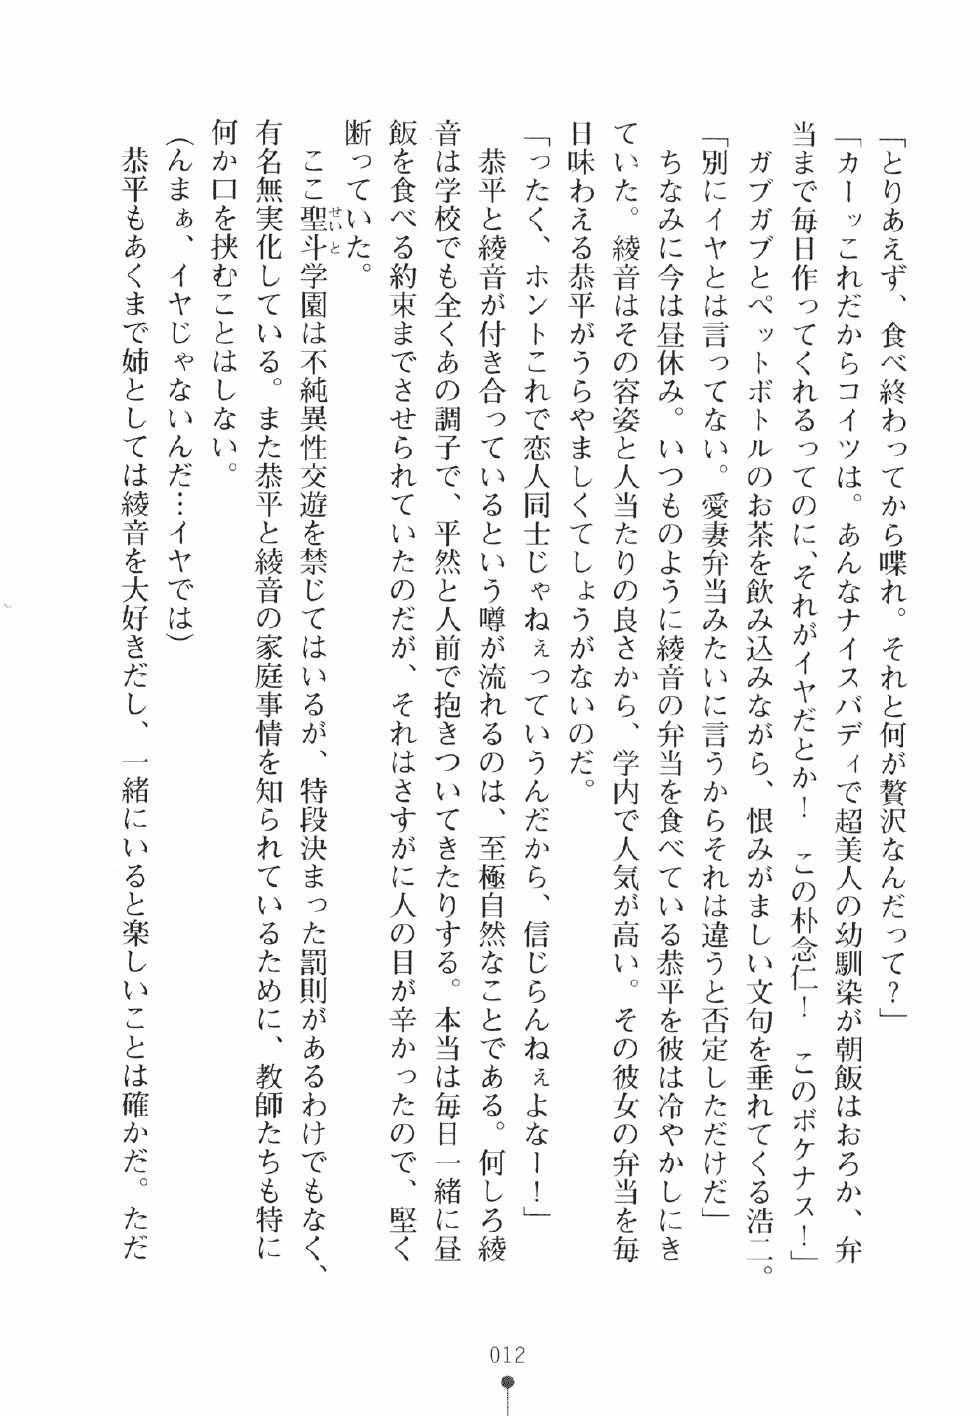 「とりあえず、食べ終わってから喋れ。それと何が贅沢なんだって？」
「カーッこれだからコイツは。あんなナイスバディで超美人の幼馴染が朝飯はおろか、弁
当まで毎日作ってくれるってのに、それがイヤだとか！　この朴念仁！　このボケナス！」
　ガブガブとペットボトルのお茶を飲み込みながら、恨みがましい文句を垂れてくる浩二。
「別にイヤとは言ってない。愛妻弁当みたいに言うからそれは違うと否定しただけだ」
　ちなみに今は昼休み。いつものように綾音の弁当を食べている恭平を彼は冷やかしにき
ていた。綾音はその容姿と人当たりの良さから、学内で人気が高い。その彼女の弁当を毎
日味わえる恭平がうらやましくてしょうがないのだ。
「ったく、ホントこれで恋人同士じゃねぇっていうんだから、信じらんねぇよなー！」
　恭平と綾音が付き合っているという噂が流れるのは、至極自然なことである。何しろ綾
音は学校でも全くあの調子で、平然と人前で抱きついてきたりする。本当は毎日一緒に昼
飯を食べる約束までさせられていたのだが、それはさすがに人の目が辛かったので、堅く
断っていた。
　ここ聖斗学園は不純異性交遊を禁じてはいるが、特段決まった罰則があるわけでもなく、
せいと
有名無実化している。また恭平と綾音の家庭事情を知られているために、教師たちも特に
何か口を挟むことはしない。
（んまぁ、イヤじゃないんだ…イヤでは）
　恭平もあくまで姉としては綾音を大好きだし、一緒にいると楽しいことは確かだ。ただ
012